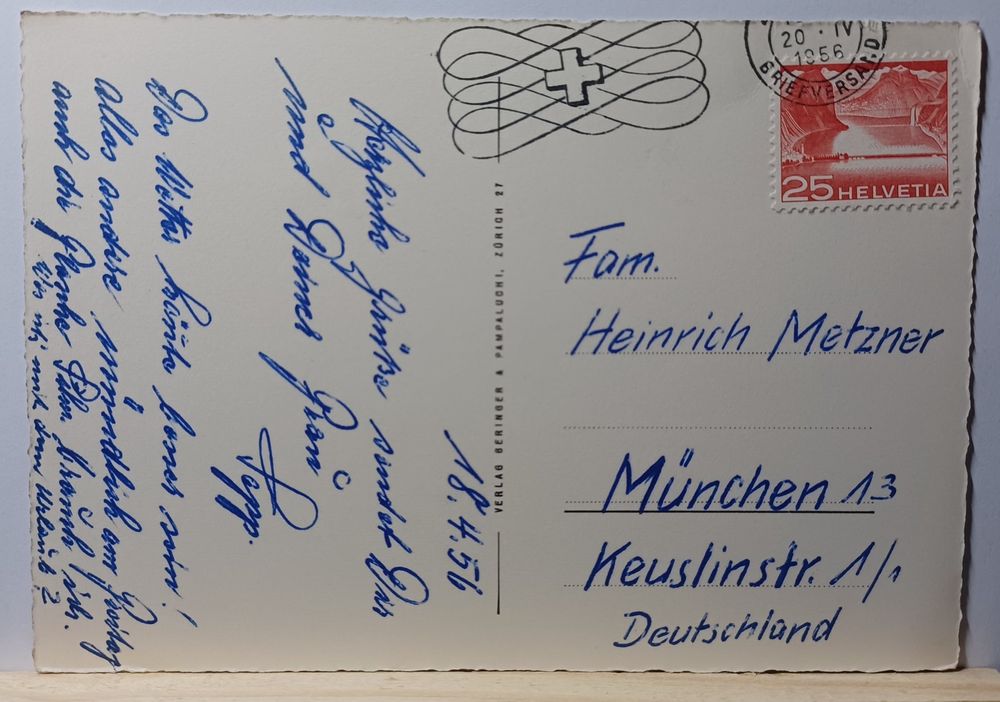 18.4.56
Herzliche Grüße sendet Dir
und Deiner Frau
Sepp.
Das Wetter könnte besser sein!
Alles andere mündlich am Freitag
auch die Flasche
mit dem Urlaub?
VERLAG BERINGER & PAMPALUCHI, ZÜRICH 27
20·IV
1956
BRIEFVERSAND
25 HELVETIA
Fam.
Heinrich Metzner
München 13
Keuslinstr. 1/1
Deutschland